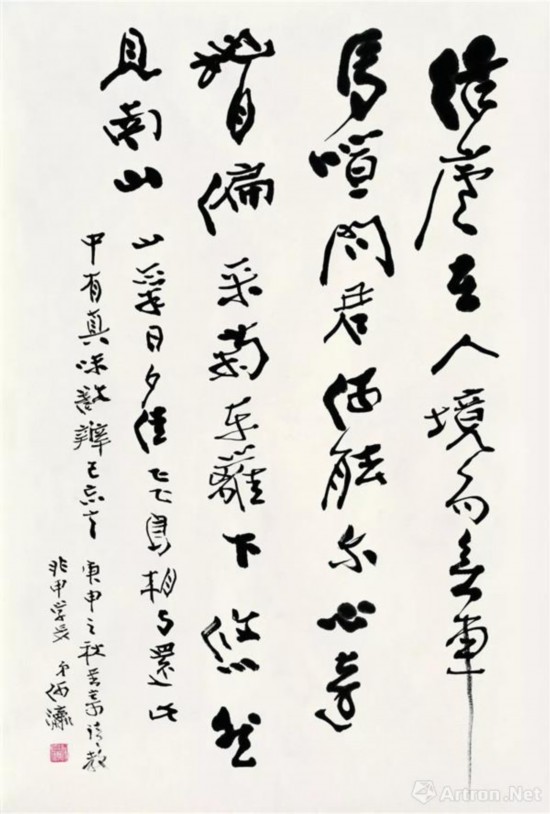 結廬在人境而無車
馬喧問君何能尔心遠
地自偏采菊东籬下悠然
見南山
山氣日夕佳飞鳥相与還此
中有真味欲辯已忘言
庚申之秋書奉請教
非甲学長弟
Artron.Net